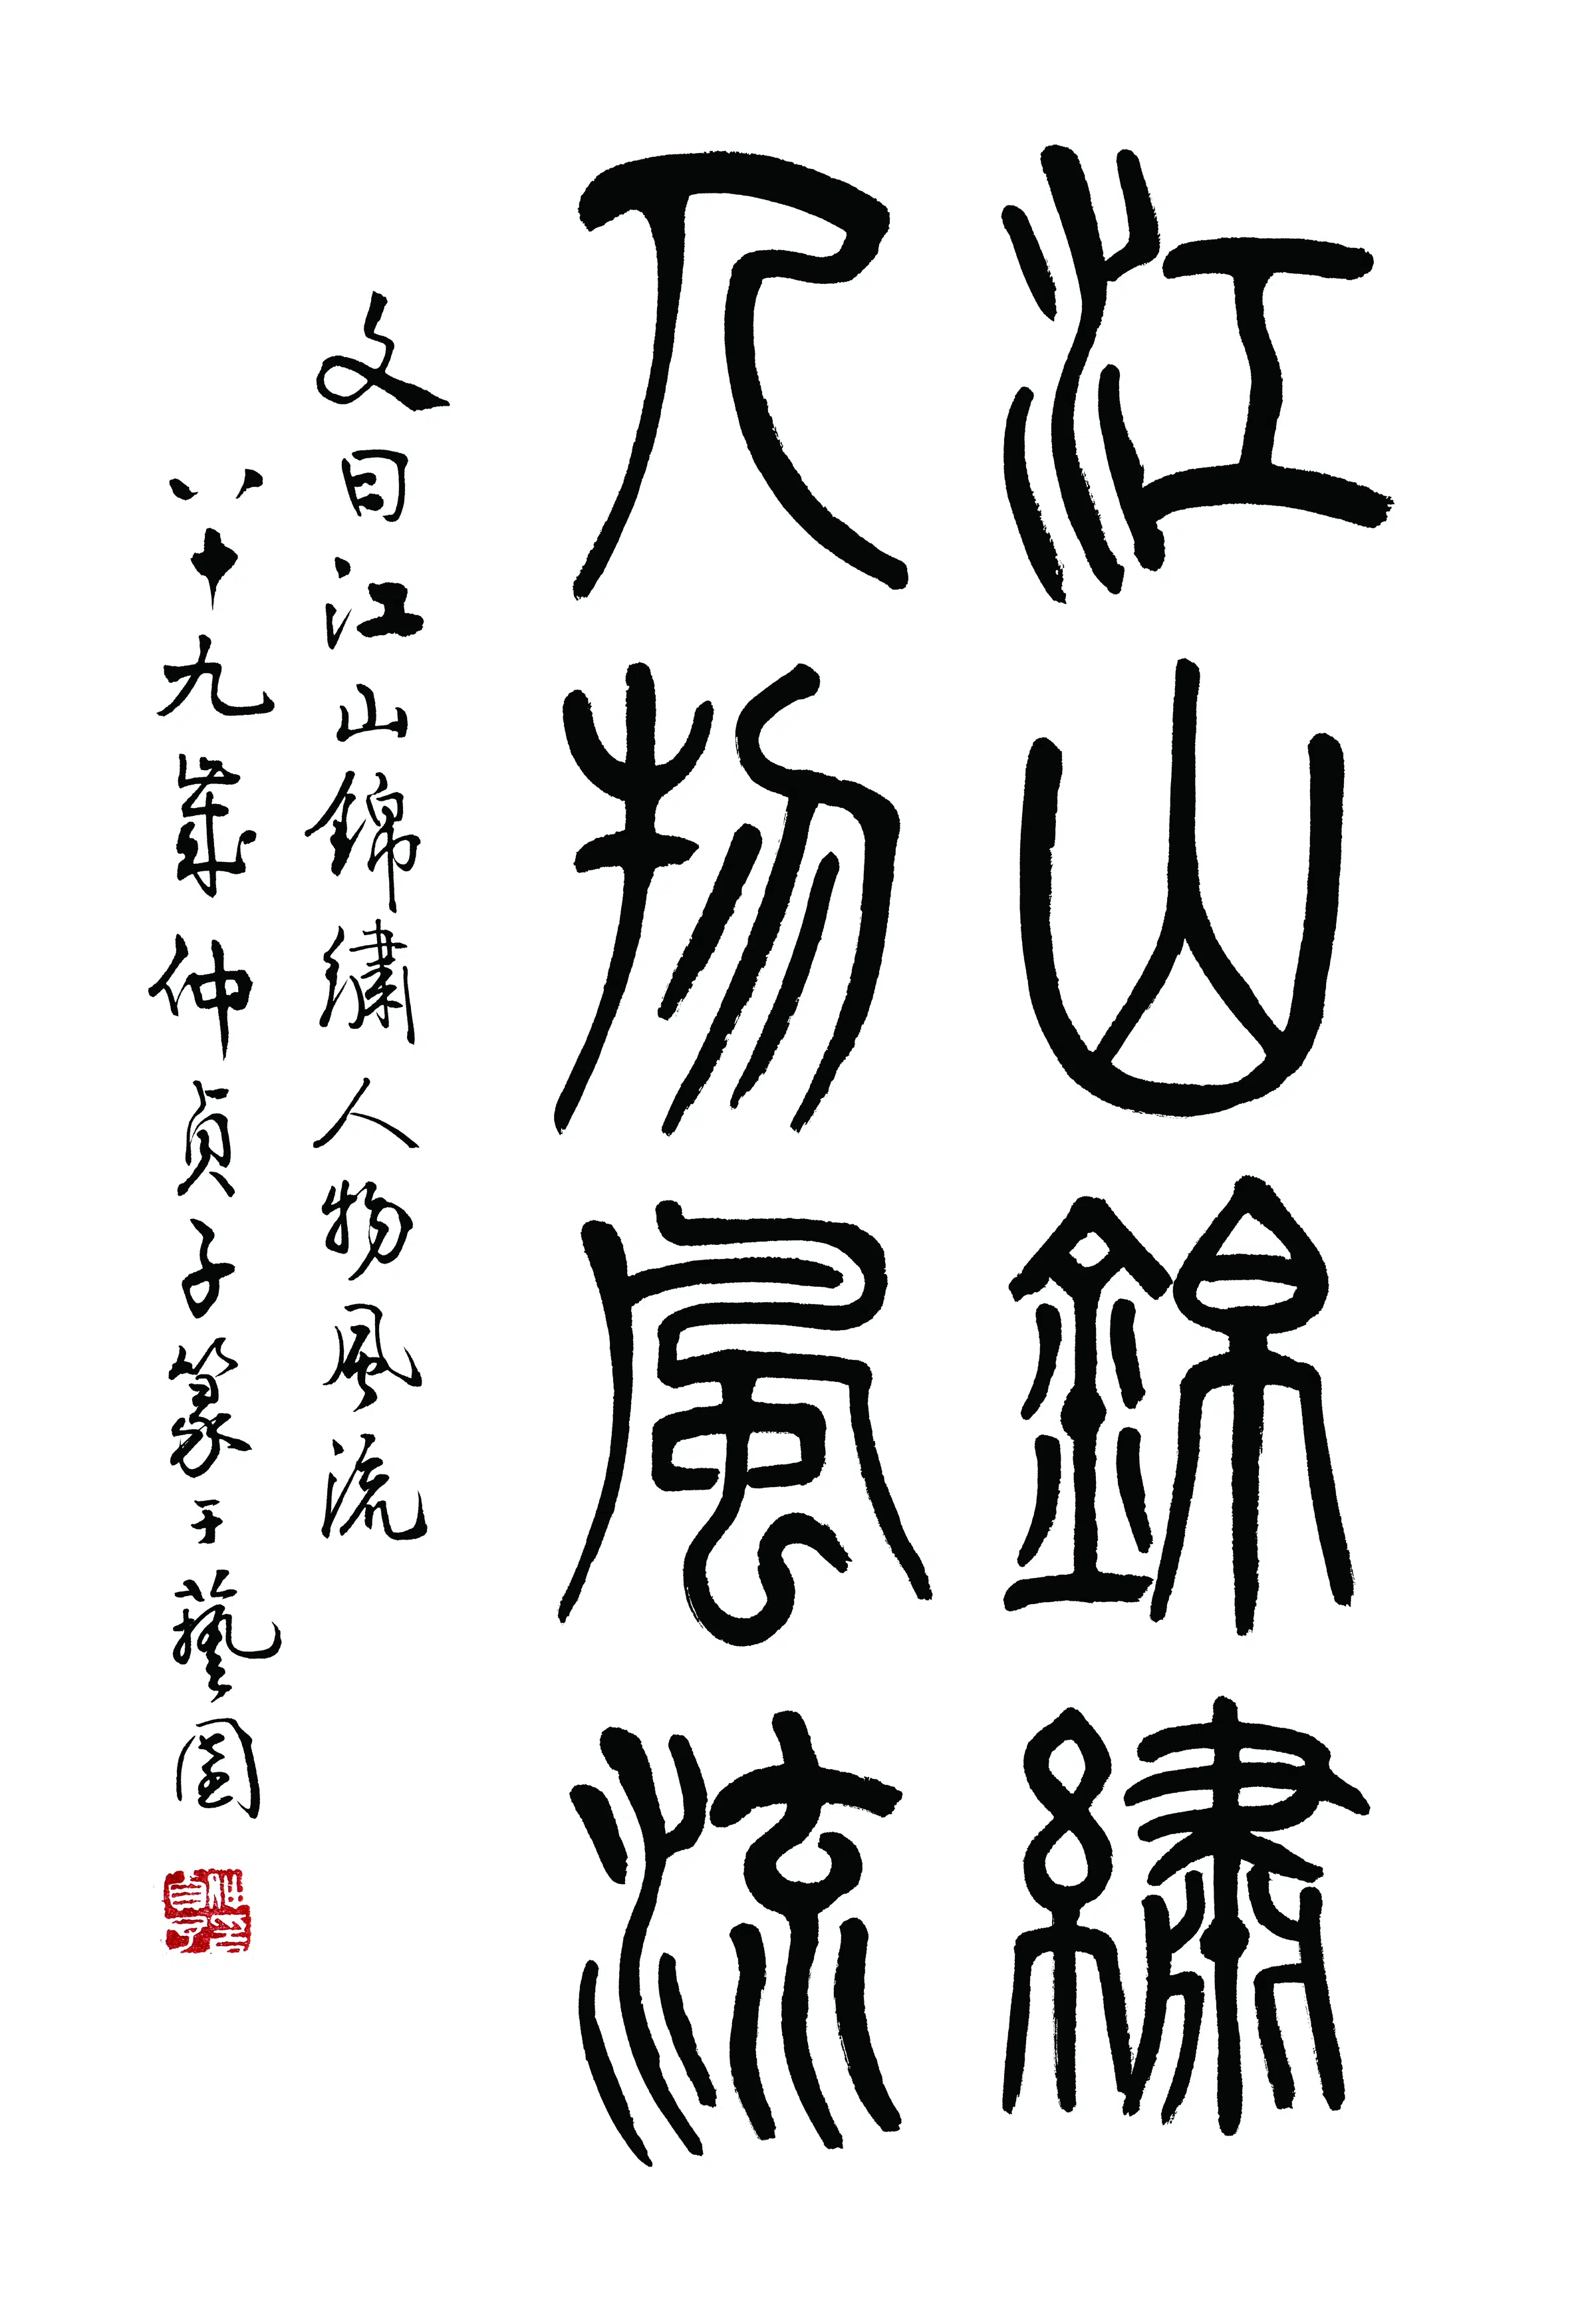 江山錦繡
人物風流
文曰江山錦繡人物風流
八十九歲仲貞子篆于藝園